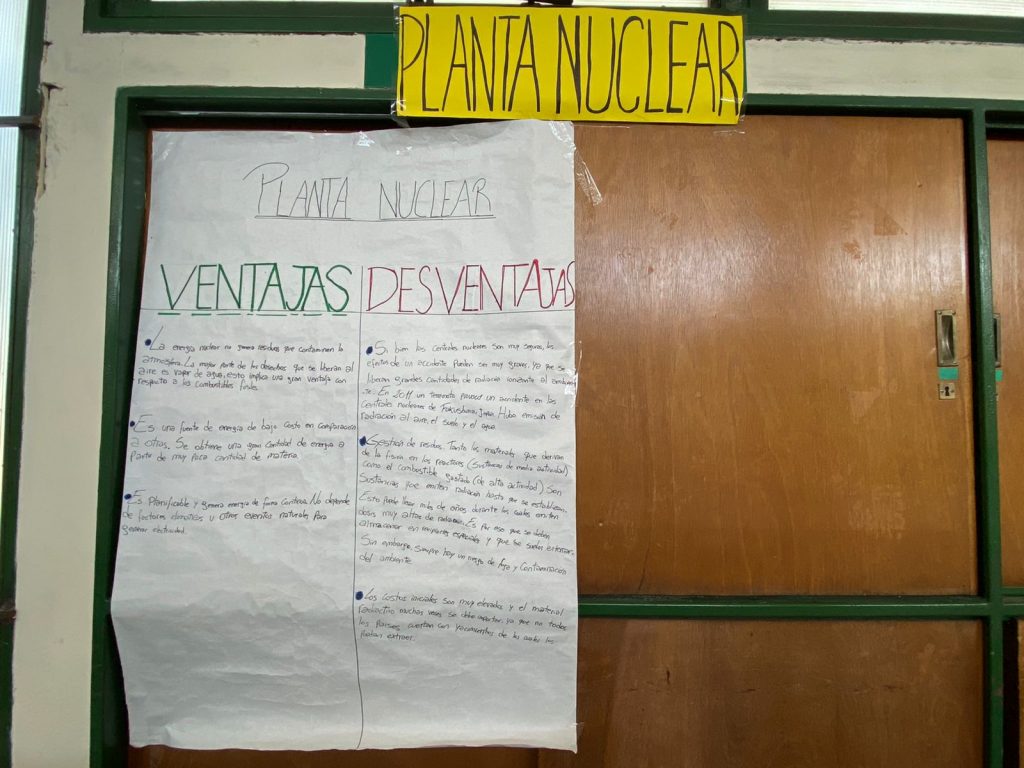 PLANTA NUCLEAR
PLANTA NUCLEAR
VENTAJAS
La energia nuclear no genera residuos que contaminen la
atmosfera. La mayor parte de los desechos que se liberan al
aire es vapor de agua, esto implica una gran ventaja con
respecto a los combustibles fosiles.
Es una fuente de energia de bajo costo en comparación
a otras. Se obtiene una gran cantidad de energia a
partir de muy poca cantidad de materia.
Es planificable y genera energia de forma continua. No depende
de factores climaticos u otros eventos naturales para
generar electricidad.
DESVENTAJAS
Si bien las centrales nucleares son muy seguras, los
efectos de un accidente pueden ser muy graves, ya que se
liberan grandes cantidades de radiación ionizante al ambien-
te. En 2011 un terremoto provocó un accidente en las
centrales nucleares de Fukushima, Japon. Hubo emisión de
radiación al aire, el suelo y el agua.
Gestión de residuos. Tanto los materiales que derivan
de la fisión en los reactores (sustancias de media actividad)
como el combustible gastado (de alta actividad) son
sustancias que emiten radiación hasta que se estabilizan.
Esto puede llevar miles de años durante los cuales emiten
dosis muy altas de radiación. Es por eso que se deben
almacenar en recipientes especiales y que se suelen enterrar.
Sin embargo, siempre hay un riesgo de fuga y contaminación
del ambiente
Los costos iniciales son muy elevados y el material
radiactivo muchas veces se debe importar ya que no todos
los paises cuentan con yacimientos de los cuales los
puedan extraer.